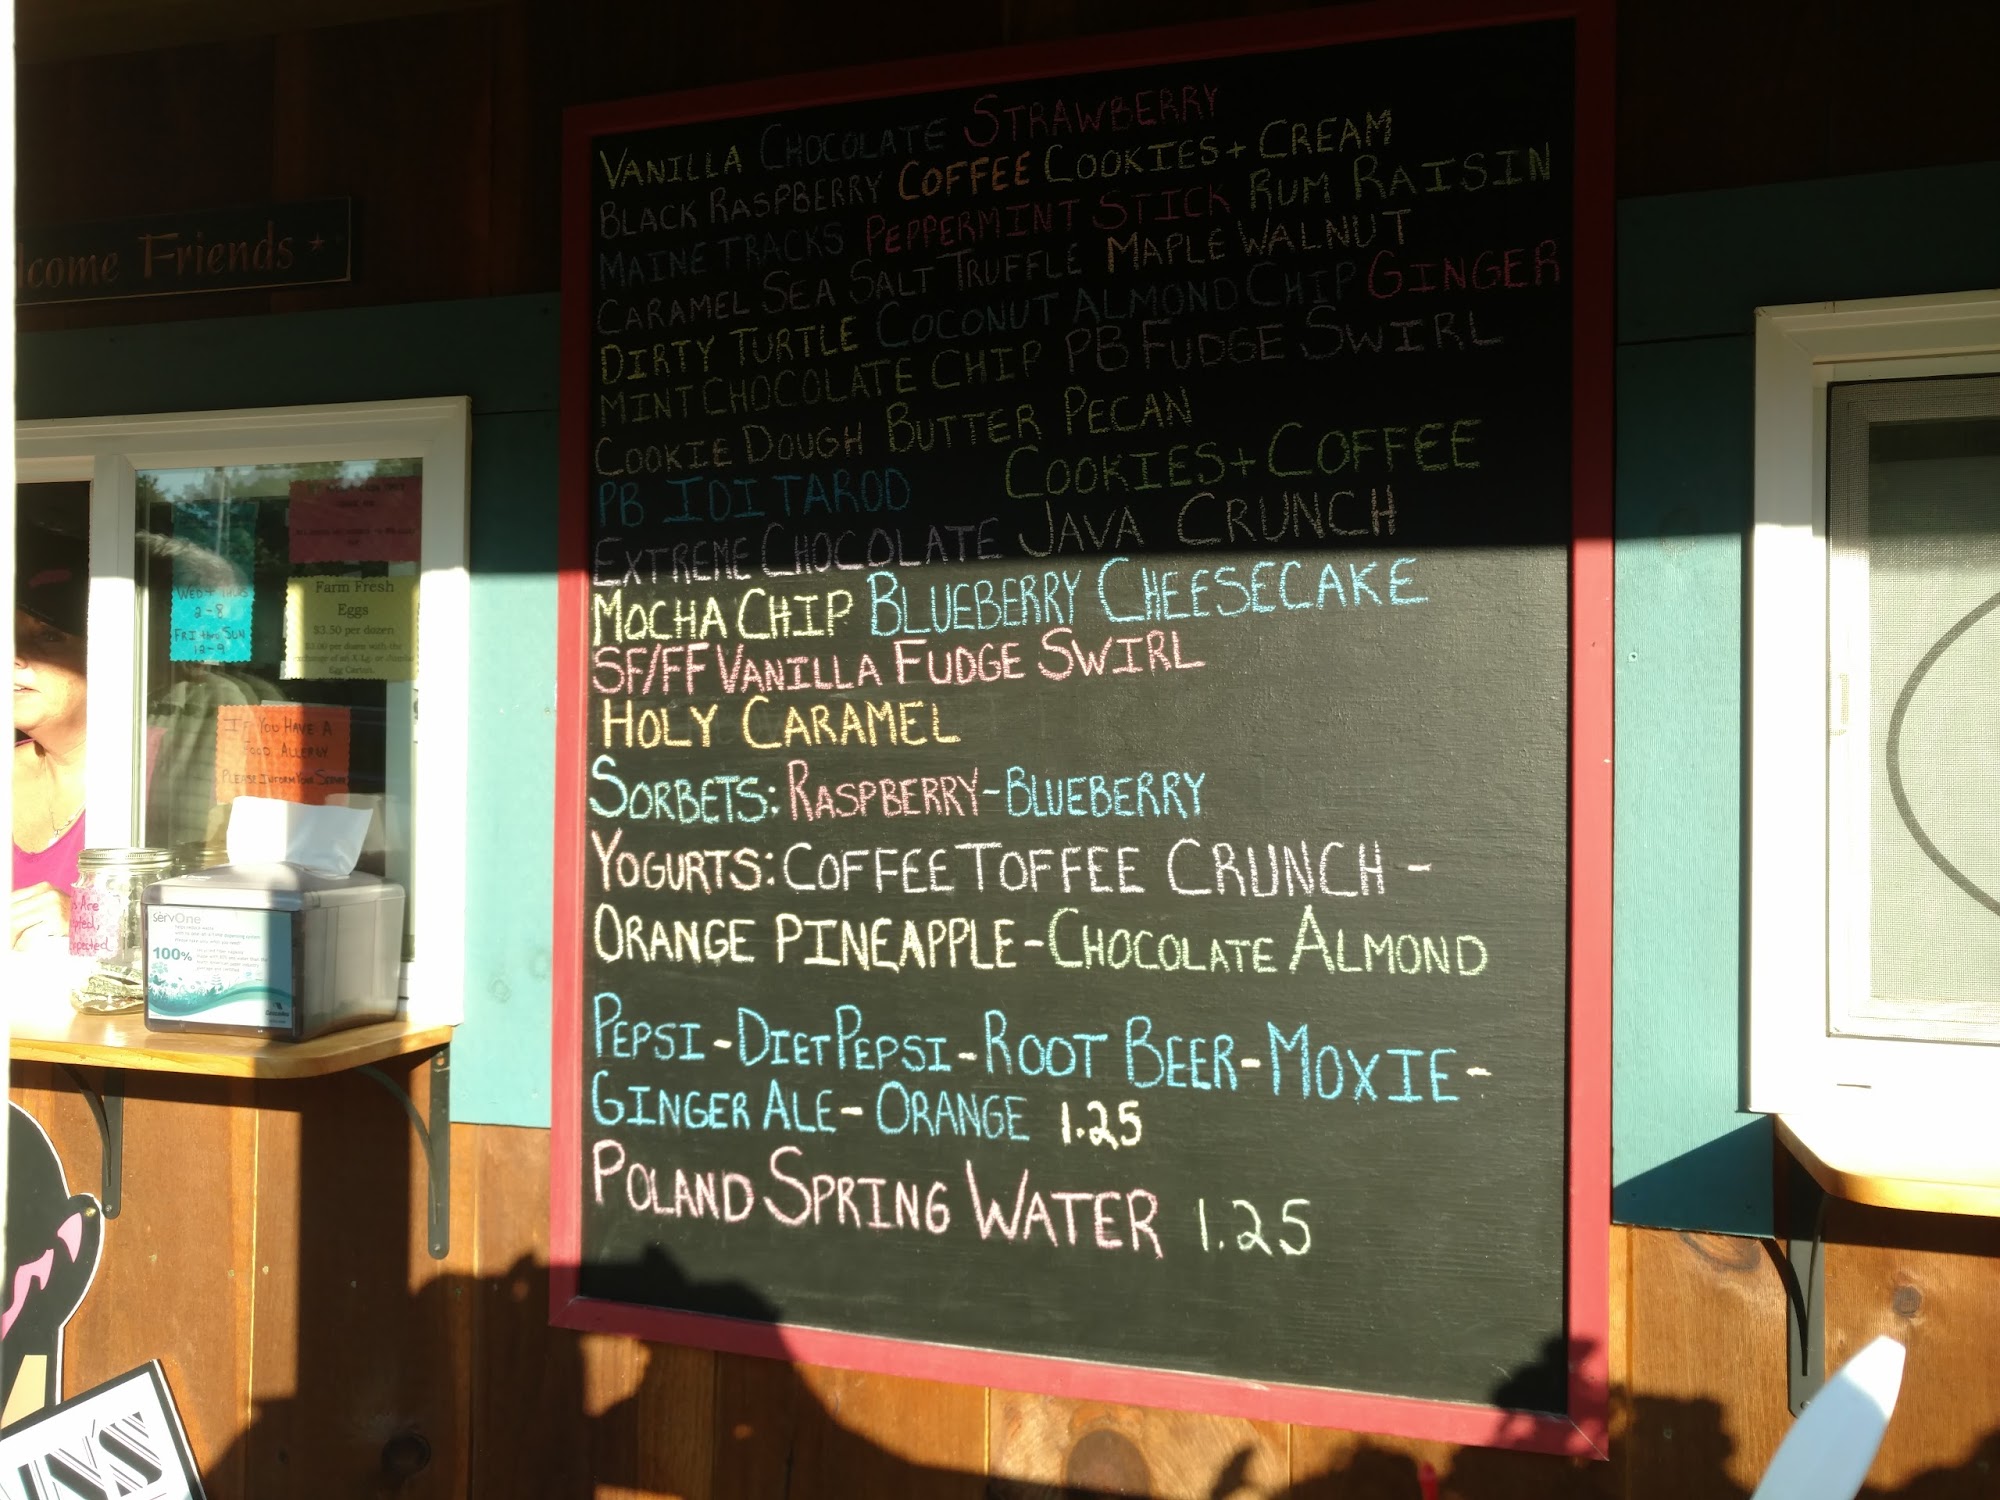 VANILLA CHOCOLATE STRAWBERRY
BLACK RASPBERRY COFFEE COOKIES + CREAM
MAINE TRACKS PEPPERMINT STICK RUM RAISIN
CARAMEL SEA SALT TRUFFLE MAPLE WALNUT
DIRTY TURTLE COCONUT ALMOND CHIP GINGER
MINT CHOCOLATE CHIP PB FUDGE SWIRL
COOKIE DOUGH BUTTER PECAN
PB IDITAROD COOKIES + COFFEE
EXTREME CHOCOLATE JAVA CRUNCH
MOCHA CHIP BLUEBERRY CHEESECAKE
SF/FF VANILLA FUDGE SWIRL
HOLY CARAMEL
SORBETS: RASPBERRY - BLUEBERRY
YOGURTS: COFFEE TOFFEE CRUNCH -
ORANGE PINEAPPLE - CHOCOLATE ALMOND
PEPSI - DIET PEPSI - ROOT BEER - MOXIE -
GINGER ALE - ORANGE 1.25
POLAND SPRING WATER 1.25
lcome Friends
WED + THURS
2-8
FRI thru SUN
12-9
Farm Fresh
Eggs
$3.50 per dozen
IF YOU HAVE A
FOOD ALLERGY
PLEASE INFORM YOUR SERVER
servOne
100%
Cascades